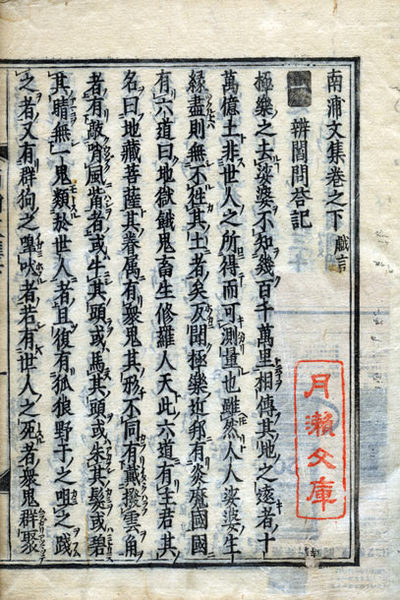 南浦文集卷之下 戯言
辨闇問答記
極樂之去娑婆不知幾百千萬里相傳其地之遠者十
萬億土非世人之所得而可測量也雖然人人娑婆生
緣盡則無不往其土者矣友聞極樂近邦有炎魔國國
有六道曰地獄餓鬼畜生修羅人天此六道有主君其
名曰地藏菩薩其眷属有衆鬼其形不同有戴撥雲角
者有敲啃風觜者或牛其頭或馬其頭或朱其髮或碧
其睛無一鬼類於世人者且復有狐狼野干之喟之踐
之者又有群狗之嘷吠者若有世人之死者衆鬼群聚
月瀬文庫